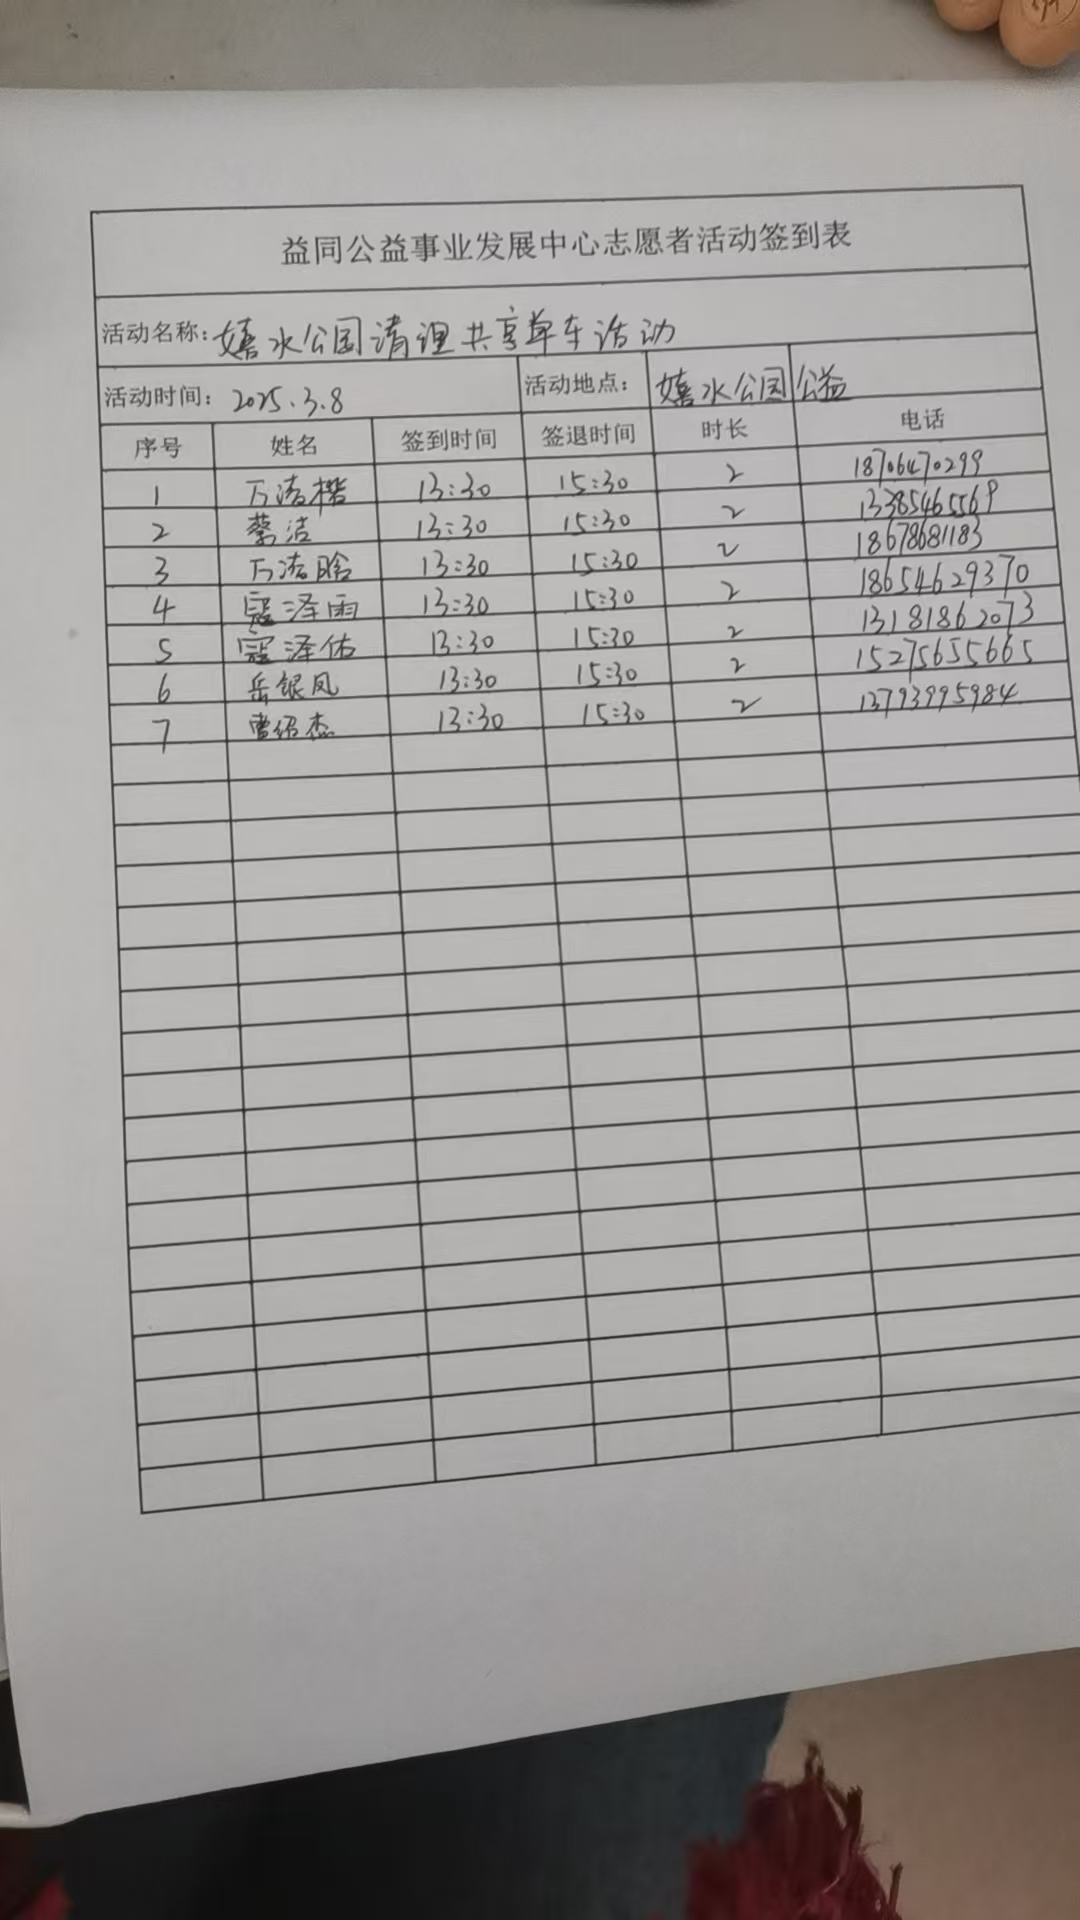 益同公益事业发展中心志愿者活动签到表
活动名称: 嬉水公园清理共享单车活动
活动时间: 2025.3.8 活动地点: 嬉水公园 公益
序号 姓名 签到时间 签退时间 时长 电话
1 万清楷 13:30 15:30 2 18706470299
2 蔡洁 13:30 15:30 2 13385465569
3 万清晗 13:30 15:30 2 18678681183
4 寇泽雨 13:30 15:30 2 18654629370
5 寇泽佑 13:30 15:30 2 13181862073
6 岳银凤 13:30 15:30 2 15275655665
7 曹绍杰 13:30 15:30 2 13793995984